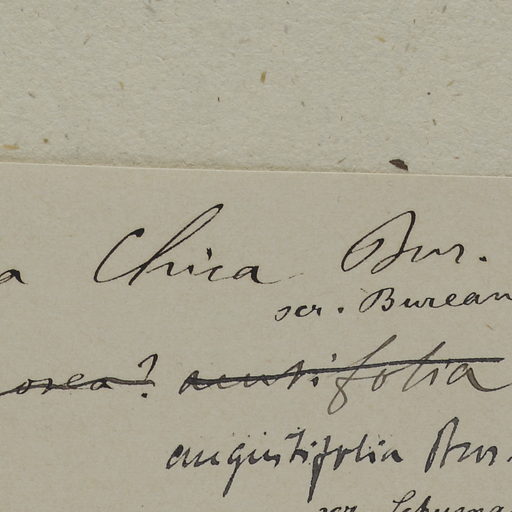 a Chica Bur.
scr. Bureau
orea? acutifolia
angustifolia Bur.
scr. Schuma